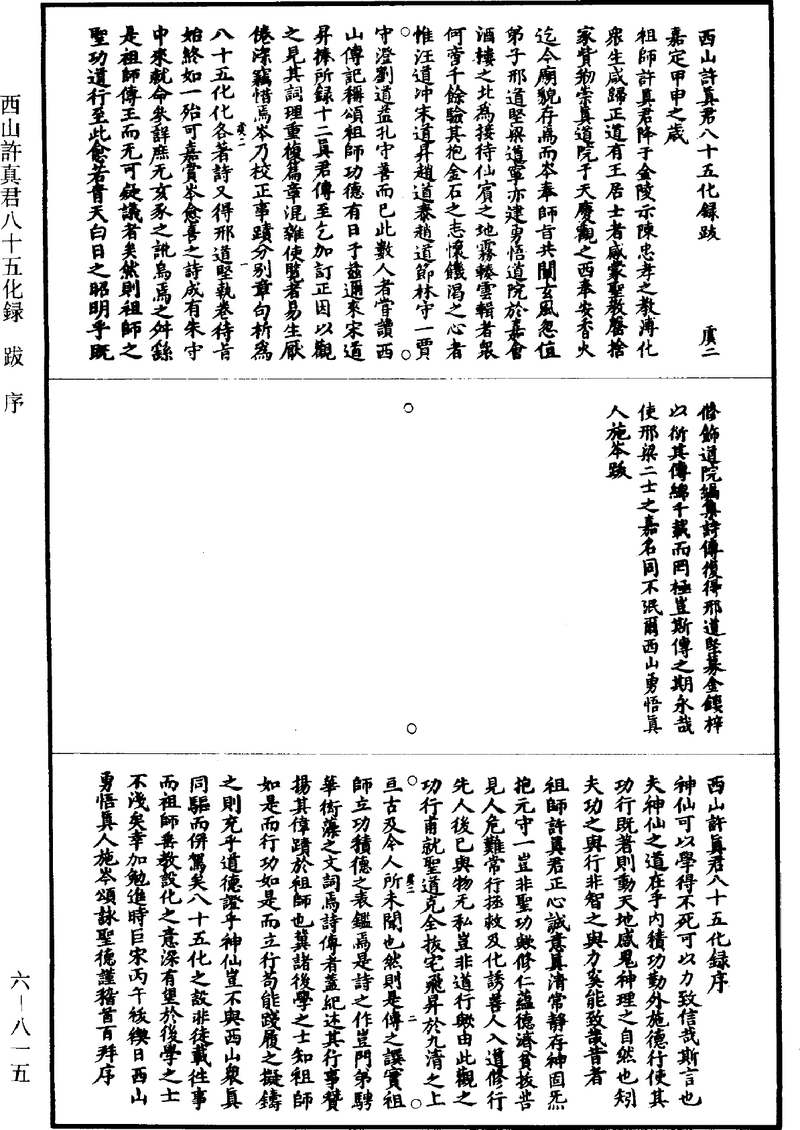 西山許真君八十五化録 跋 序
六-八一五
西山許眞君八十五化録跋 虞二
嘉定甲申之歲
祖師許眞君降于金陵示陳忠孝之教溥化
衆生咸歸正道有王居士者感蒙聖教磿捨
家貲物崇眞道院于天慶觀之西奉安香火
迄今廟貌存焉而岑奉師旨共闡玄風忽值
弟子邢道堅梁道寧亦建勇悟道院於嘉會
酒樓之北爲接待仙賓之地霧輳雲輯者衆
何啻千餘驗其抱金石之志懷饑渴之心者
惟汪道冲宋道昇趙道泰趙道節林守一賈
守澄劉道益孔守善而已此數人者嘗讀西
山傳記稱頌祖師功德有日于兹邇來宋道
昇捧所録十二眞君傳至乞加訂正因以觀
之見其詞理重複篇章混雜使覽者易生厭
倦深竊惜焉岑乃校正事蹟分別章句析爲
虞二
一
八十五化化各著詩又得邢道堅執卷待旨
始終如一殆可嘉賞岑愈喜之詩成有朱守
中來就命矣詳庶无亥豕之訛烏焉之舛繇
是祖師傳王而无可疑議者矣然則祖師之
聖功道行至此愈若青天白日之昭明乎既
修飾道院編集詩傳復得邢道堅募金鏤梓
以衍其傳綿千載而罔極豈斯傳之期永哉
使邢梁二士之嘉名同不泯爾西山勇悟眞
人施岑跋
西山許眞君八十五化録序
神仙可以學得不死可以力致信哉斯言也
夫神仙之道在乎内積功勤外施德行使其
功行既著則動天地感鬼神理之自然也矧
夫功之與行非智之與力奚能致哉昔者
祖師許眞君正心誠意眞清常靜存神固炁
抱元守一豈非聖功歟修仁蘊德濟貧拔苦
見人危難常行拯救及化誘善人入道修行
先人後己與物无私豈非道行歟由此觀之
功行甫就聖道克全拔宅飛昇於九清之上
虞二
二
亘古及今人所未聞也然則是傳之譔實祖
師立功積德之表鑑焉是詩之作豈門弟騁
華衒藻之文詞焉詩傳者蓋紀述其行事贊
揚其偉蹟於祖師也冀諸後學之士知祖師
如是而行功如是而立行苟能踐履之擬鑄
之則充乎道德證乎神仙豈不與西山衆眞
同驅而併駕矣八十五化之設非徒載徃事
而祖師善教設化之意深有望於後學之士
不淺矣幸加勉進時巨宋丙午秡禊日西山
勇悟眞人施岑頌詠聖德謹稽首百拜序